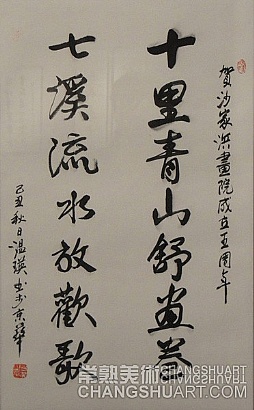 賀沙家浜畫院成立五周年
十里青山舒畫卷
七溪流水放歡歌
己丑秋日温瑛书于京華
常熟美術
CHANGSHUART
CHANGSHUART.COM